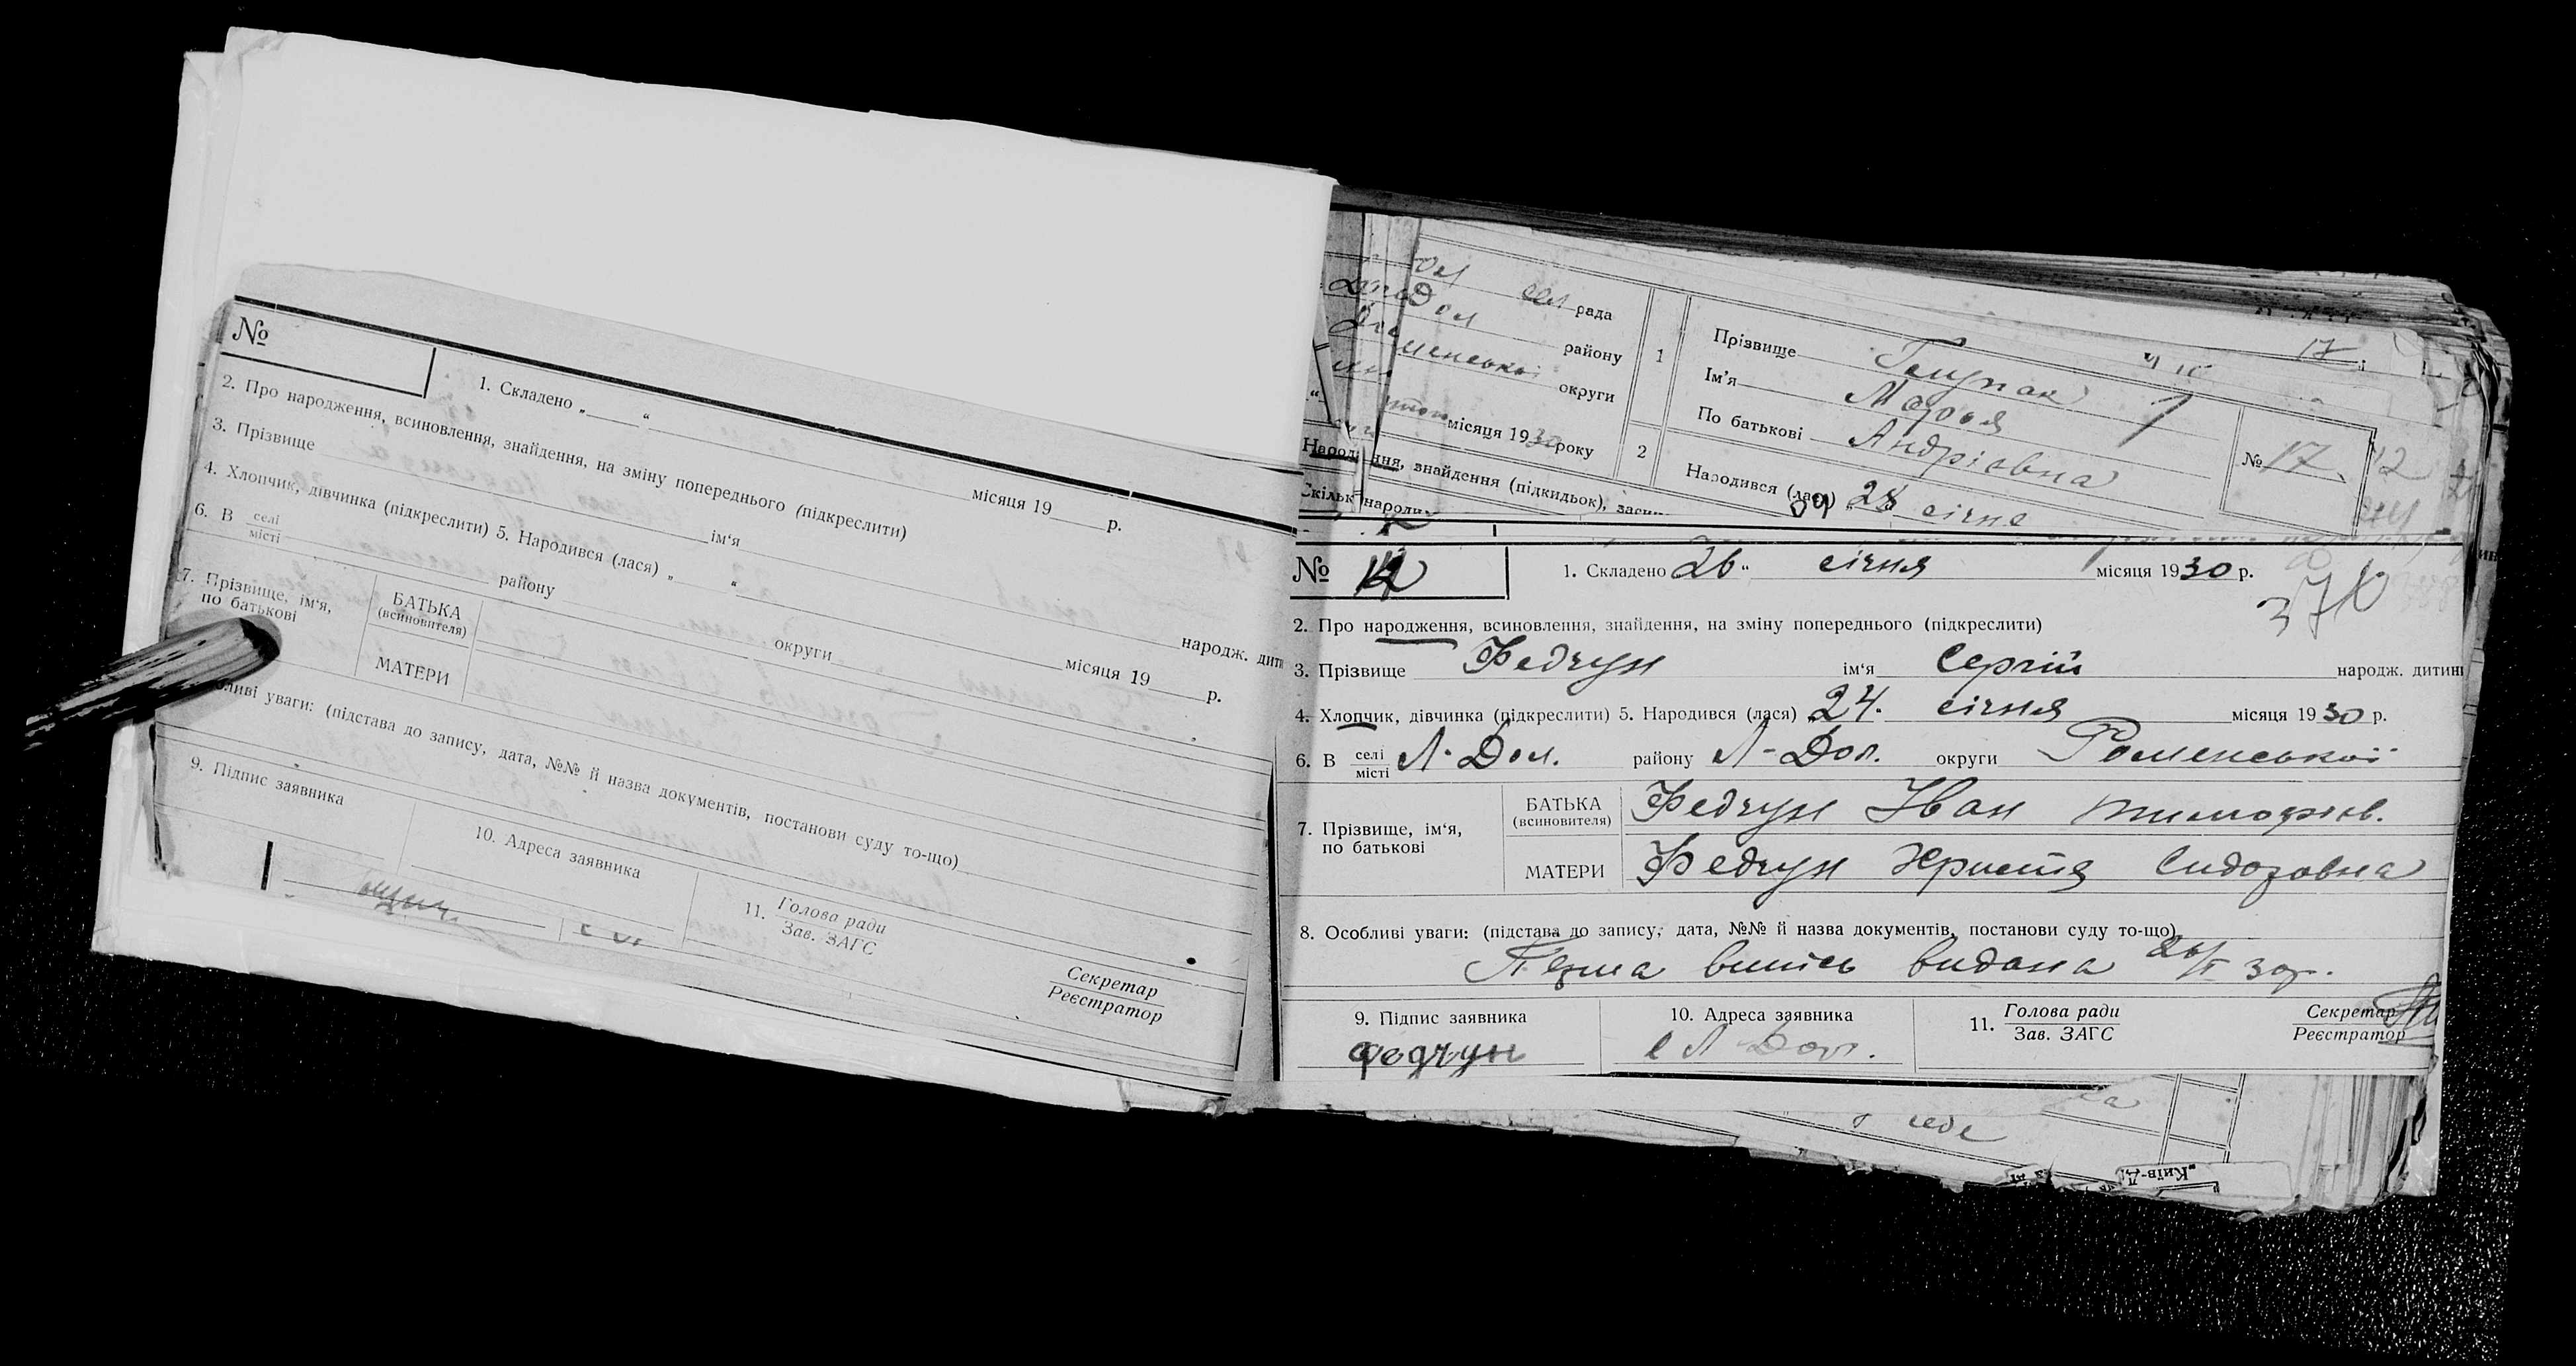 №
1. Складено „ “ місяця 19 р.
2. Про народження, всиновлення, знайдення, на зміну попереднього (підкреслити)
3. Прізвище ім'я народж. дити
4. Хлопчик, дівчинка (підкреслити) 5. Народився (лася) „ “ місяця 19 р.
6. В селі місті району округи
7. Прізвище, ім'я, по батькові
БАТЬКА (всиновителя)
МАТЕРИ
ливі уваги: (підстава до запису, дата, №№ й назва документів, постанови суду то-що)
9. Підпис заявника
10. Адреса заявника
11. Голова ради Зав. ЗАГС
Секретар Реєстратор
Дол сел рада
району
округи
місяця 1930 року
1
Прізвище
Ім'я Марья
По батькові Андрівна
17
№ 17
12
2
Народився (лася) 28 січне
ння, знайдення (підкидьок),
Скільк народи
№ 12
1. Складено 26 “ січня місяця 1930 р.
37
2. Про народження, всиновлення, знайдення, на зміну попереднього (підкреслити)
3. Прізвище Федчун ім'я Сергій народж. дитин
4. Хлопчик, дівчинка (підкреслити) 5. Народився (лася) 24. січня місяця 1930 р.
6. В селі місті Л-Дол. району Л-Дол. округи Роменської
7. Прізвище, ім'я, по батькові
БАТЬКА (всиновителя) Федчун Іван Тимофіїв.
МАТЕРИ Федчун Христя Сидоровна
8. Особливі уваги: (підстава до запису, дата, №№ й назва документів, постанови суду то-що)
Перша випись видана 26/I 30р.
9. Підпис заявника
10. Адреса заявника
11. Голова ради Зав. ЗАГС
Секретар Реєстратор
Федчун
с Л-Дол.
„Київ-Д